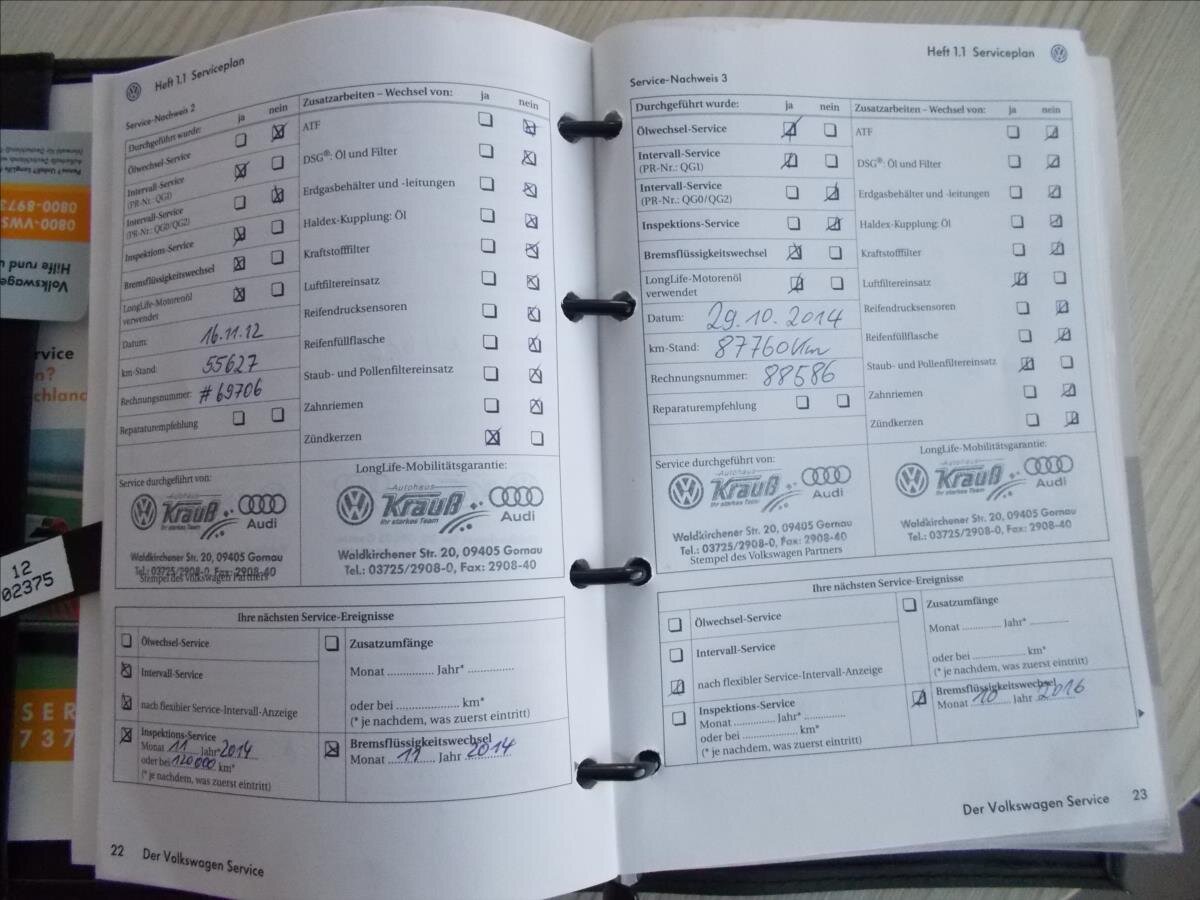 Heft 1.1 Serviceplan
Service-Nachweis 2
Durchgeführt wurde: ja nein
Ölwechsel-Service
Intervall-Service
(PR-Nr.: QG1)
Intervall-Service
(PR-Nr.: QG0/QG2)
Inspektions-Service
Bremsflüssigkeitswechsel
LongLife-Motorenöl
verwendet
Datum: 16.11.12
km-Stand: 55627
Rechnungsnummer: #69706
Reparaturempfehlung
Zusatzarbeiten – Wechsel von: ja nein
ATF
DSG®: Öl und Filter
Erdgasbehälter und -leitungen
Haldex-Kupplung: Öl
Kraftstofffilter
Luftfiltereinsatz
Reifendrucksensoren
Reifenfüllflasche
Staub- und Pollenfiltereinsatz
Zahnriemen
Zündkerzen
Service durchgeführt von:
Autohaus
Krauß
Ihr starkes Team
Audi
Waldkirchener Str. 20, 09405 Gornau
Tel.: 03725/2908-0, Fax: 2908-40
Stempel des Volkswagen Partners
LongLife-Mobilitätsgarantie:
Autohaus
Krauß
Ihr starkes Team
Audi
Waldkirchener Str. 20, 09405 Gornau
Tel.: 03725/2908-0, Fax: 2908-40
Ihre nächsten Service-Ereignisse
Ölwechsel-Service
Intervall-Service
nach flexibler Service-Intervall-Anzeige
Inspektions-Service
Monat 11 Jahr* 2014
oder bei 120000 km*
(* je nachdem, was zuerst eintritt)
Zusatzumfänge
Monat ............ Jahr* ..............
oder bei .................... km*
(* je nachdem, was zuerst eintritt)
Bremsflüssigkeitswechsel
Monat 11 Jahr 2014
22 Der Volkswagen Service
Heft 1.1 Serviceplan
Service-Nachweis 3
Durchgeführt wurde: ja nein
Ölwechsel-Service
Intervall-Service
(PR-Nr.: QG1)
Intervall-Service
(PR-Nr.: QG0/QG2)
Inspektions-Service
Bremsflüssigkeitswechsel
LongLife-Motorenöl
verwendet
Datum: 29.10.2014
km-Stand: 87760Km
Rechnungsnummer: 88586
Reparaturempfehlung
Zusatzarbeiten – Wechsel von: ja nein
ATF
DSG®: Öl und Filter
Erdgasbehälter und -leitungen
Haldex-Kupplung: Öl
Kraftstofffilter
Luftfiltereinsatz
Reifendrucksensoren
Reifenfüllflasche
Staub- und Pollenfiltereinsatz
Zahnriemen
Zündkerzen
Service durchgeführt von:
Autohaus
Krauß
Ihr starkes Team
Audi
Waldkirchener Str. 20, 09405 Gornau
Tel.: 03725/2908-0, Fax: 2908-40
Stempel des Volkswagen Partners
LongLife-Mobilitätsgarantie:
Autohaus
Krauß
Ihr starkes Team
Audi
Waldkirchener Str. 20, 09405 Gornau
Tel.: 03725/2908-0, Fax: 2908-40
Ihre nächsten Service-Ereignisse
Ölwechsel-Service
Intervall-Service
nach flexibler Service-Intervall-Anzeige
Inspektions-Service
Monat ............ Jahr* ............
oder bei .................... km*
(* je nachdem, was zuerst eintritt)
Zusatzumfänge
Monat ............ Jahr* ............
oder bei .................... km*
(* je nachdem, was zuerst eintritt)
Bremsflüssigkeitswechsel
Monat 10 Jahr 2016
Der Volkswagen Service 23
0800-8973
0800-VWS
Hilfe rund u
Volkswage
rvice
n?
chland
12
02375
SER
737